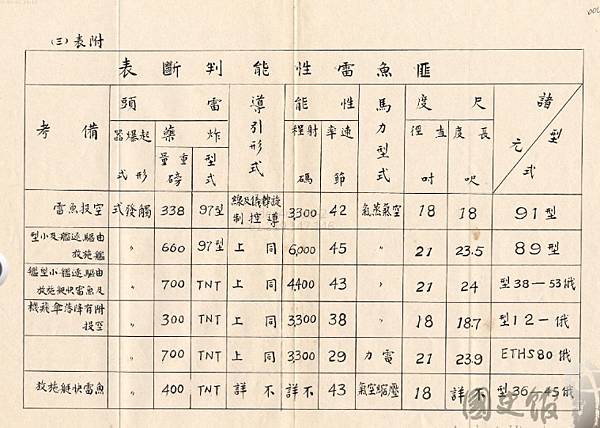 附表(三)
匪魚雷性能判斷表
諸元 型式
尺度
長度 呎
直徑 吋
馬力型式
性能
速率 節
射程 碼
導引形式
雷頭
炸藥
型式
重量 磅
起爆器 形式
備考
91型 18 18 空氣蒸氣 42 3,300 旋轉儀及線導控制 97型 338 觸發式 空投魚雷
89型 23.5 21 〃 45 6,000 同上 97型 660 〃 由驅逐艦及小型艦施放
俄53—38型 24 21 〃 43 4,400 同上 TNT 700 〃 由驅逐艦小型艦及魚雷快艇施放
俄一12型 18.7 18 〃 38 3,300 同上 TNT 300 〃 附有降落傘飛機空投
俄ETHS80 23.9 21 電力 29 3,300 同上 TNT 700 〃
俄45—36型 不詳 18 壓縮空氣 43 不詳 不詳 TNT 400 〃 魚雷快艇施放
國史館